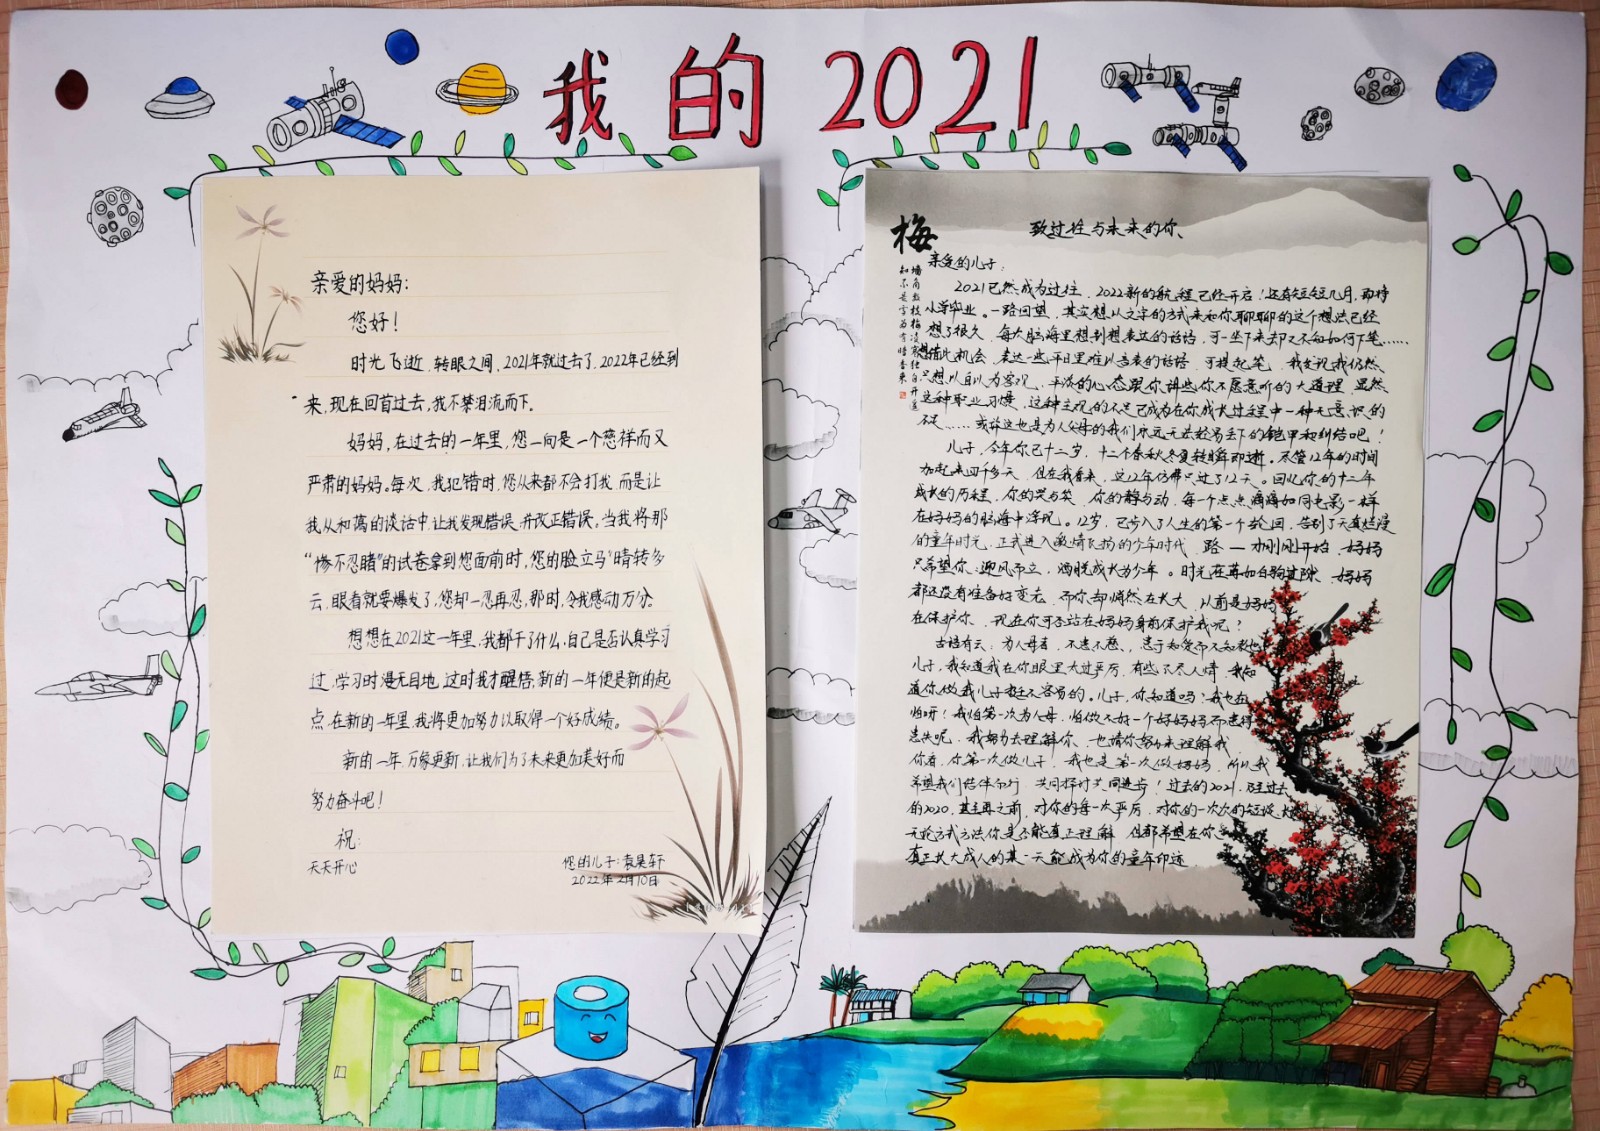 我的2021
亲爱的妈妈:
您好!
时光飞逝,转眼之间,2021年就过去了,2022年已经到
来,现在回首过去,我不禁泪流而下。
妈妈,在过去的一年里,您一向是一个慈祥而又
严肃的妈妈。每次,我犯错时,您从来都不会打我,而是让
我从和蔼的谈话中,让我发现错误,并改正错误。当我将那
“惨不忍睹”的试卷拿到您面前时,您的脸立马“晴转多
云,眼看就要爆发了,您却一忍再忍,那时,令我感动万分。
想想在2021这一年里,我都干了什么,自己是否认真学习
过,学习时漫无目地,这时我才醒悟,新的一年便是新的起
点,在新的一年里,我将更加努力以取得一个好成绩。
新的一年,万象更新,让我们为了未来更加美好而
努力奋斗吧!
祝:
天天开心
您的儿子:袁昊轩
2022年2月10日
梅
墙角数枝梅凌寒独自开遥
知不是雪为有暗香来
致过往与未来的你、
亲爱的儿子:
2021已然成为过往,2022新的航程已经开启!还有短短几月,即将
小学毕业。一路回望,其实想以文字的方式来和你聊聊的这个想法已经
想了很久,每次脑海里想到想表达的话语,可一坐下来却又不知如何下笔……
想借此机会,表达一些平日里难以言表的话语,可提起笔,我发现我仍然、
只想以自以为客观、平淡的心态跟你讲些你不愿意听的大道理,显然
这种职业习惯,这种主观的不足已成为在你成长过程中一种无意识的
……或许这也是为人父母的我们永远无法轻易丢下的铠甲和纠结吧!
儿子,今年你已十二岁,十二个春秋冬夏转瞬即逝。尽管12年的时间
加起来四千多天,但在我看来,这12年仿佛只过了12天。回忆你的十二年
成长的历程,你的哭与笑,你的静与动,每一个点点滴滴如同电影一样
在妈妈的脑海中浮现。12岁,已步入了人生的第一个轮回,告别了天真烂漫
的童年时光,正式进入激情飞扬的少年时代,路一才刚刚开始,妈妈
只希望你:迎风而立,洒脱成长为少年。时光荏苒如白驹过隙,妈妈
都还没有准备好变老,而你却悄然在长大,以前是妈妈
在保护你,现在你可否站在妈妈身前保护我呢?
古语有云:为人母者,不患不慈,患于知爱而不知教也
儿子,我知道我在你眼里太过严厉,有些不尽人情,我知
道你做我儿子挺不容易的,儿子,你知道吗?我也在
怕呀!我怕第一次为人母,怕做不好一个好妈妈而患得
患失呢,我努力去理解你,也请你努力来理解我
你看,你第一次做儿子!我也是第一次做妈妈,所以我
希望我们结伴而行,共同探讨共同进步!过去的2021,及至过去
的2020,甚至再之前,对你的每一次严厉,对你的一次次的
无论方式方法你是否能真正理解,但都希望在你
真正长大成人的某一天能成为你的童年印迹